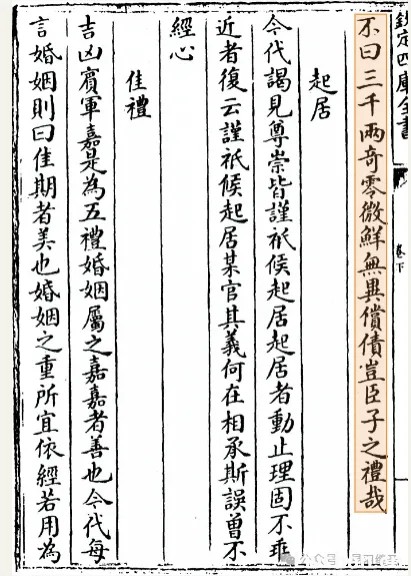 欽定四庫全書
卷下
不曰三千兩奇零微鮮無異償債豈臣子之禮哉
起居
今代謁見尊崇皆謹祗候起居起居者動止理固不乖
近者復云謹祗候起居某官其義何在相承斯誤曾不
經心
佳禮
吉凶賓軍嘉是為五禮婚姻屬之嘉嘉者善也今代每
言婚姻則曰佳期者美也婚姻之重所宜依經若用為